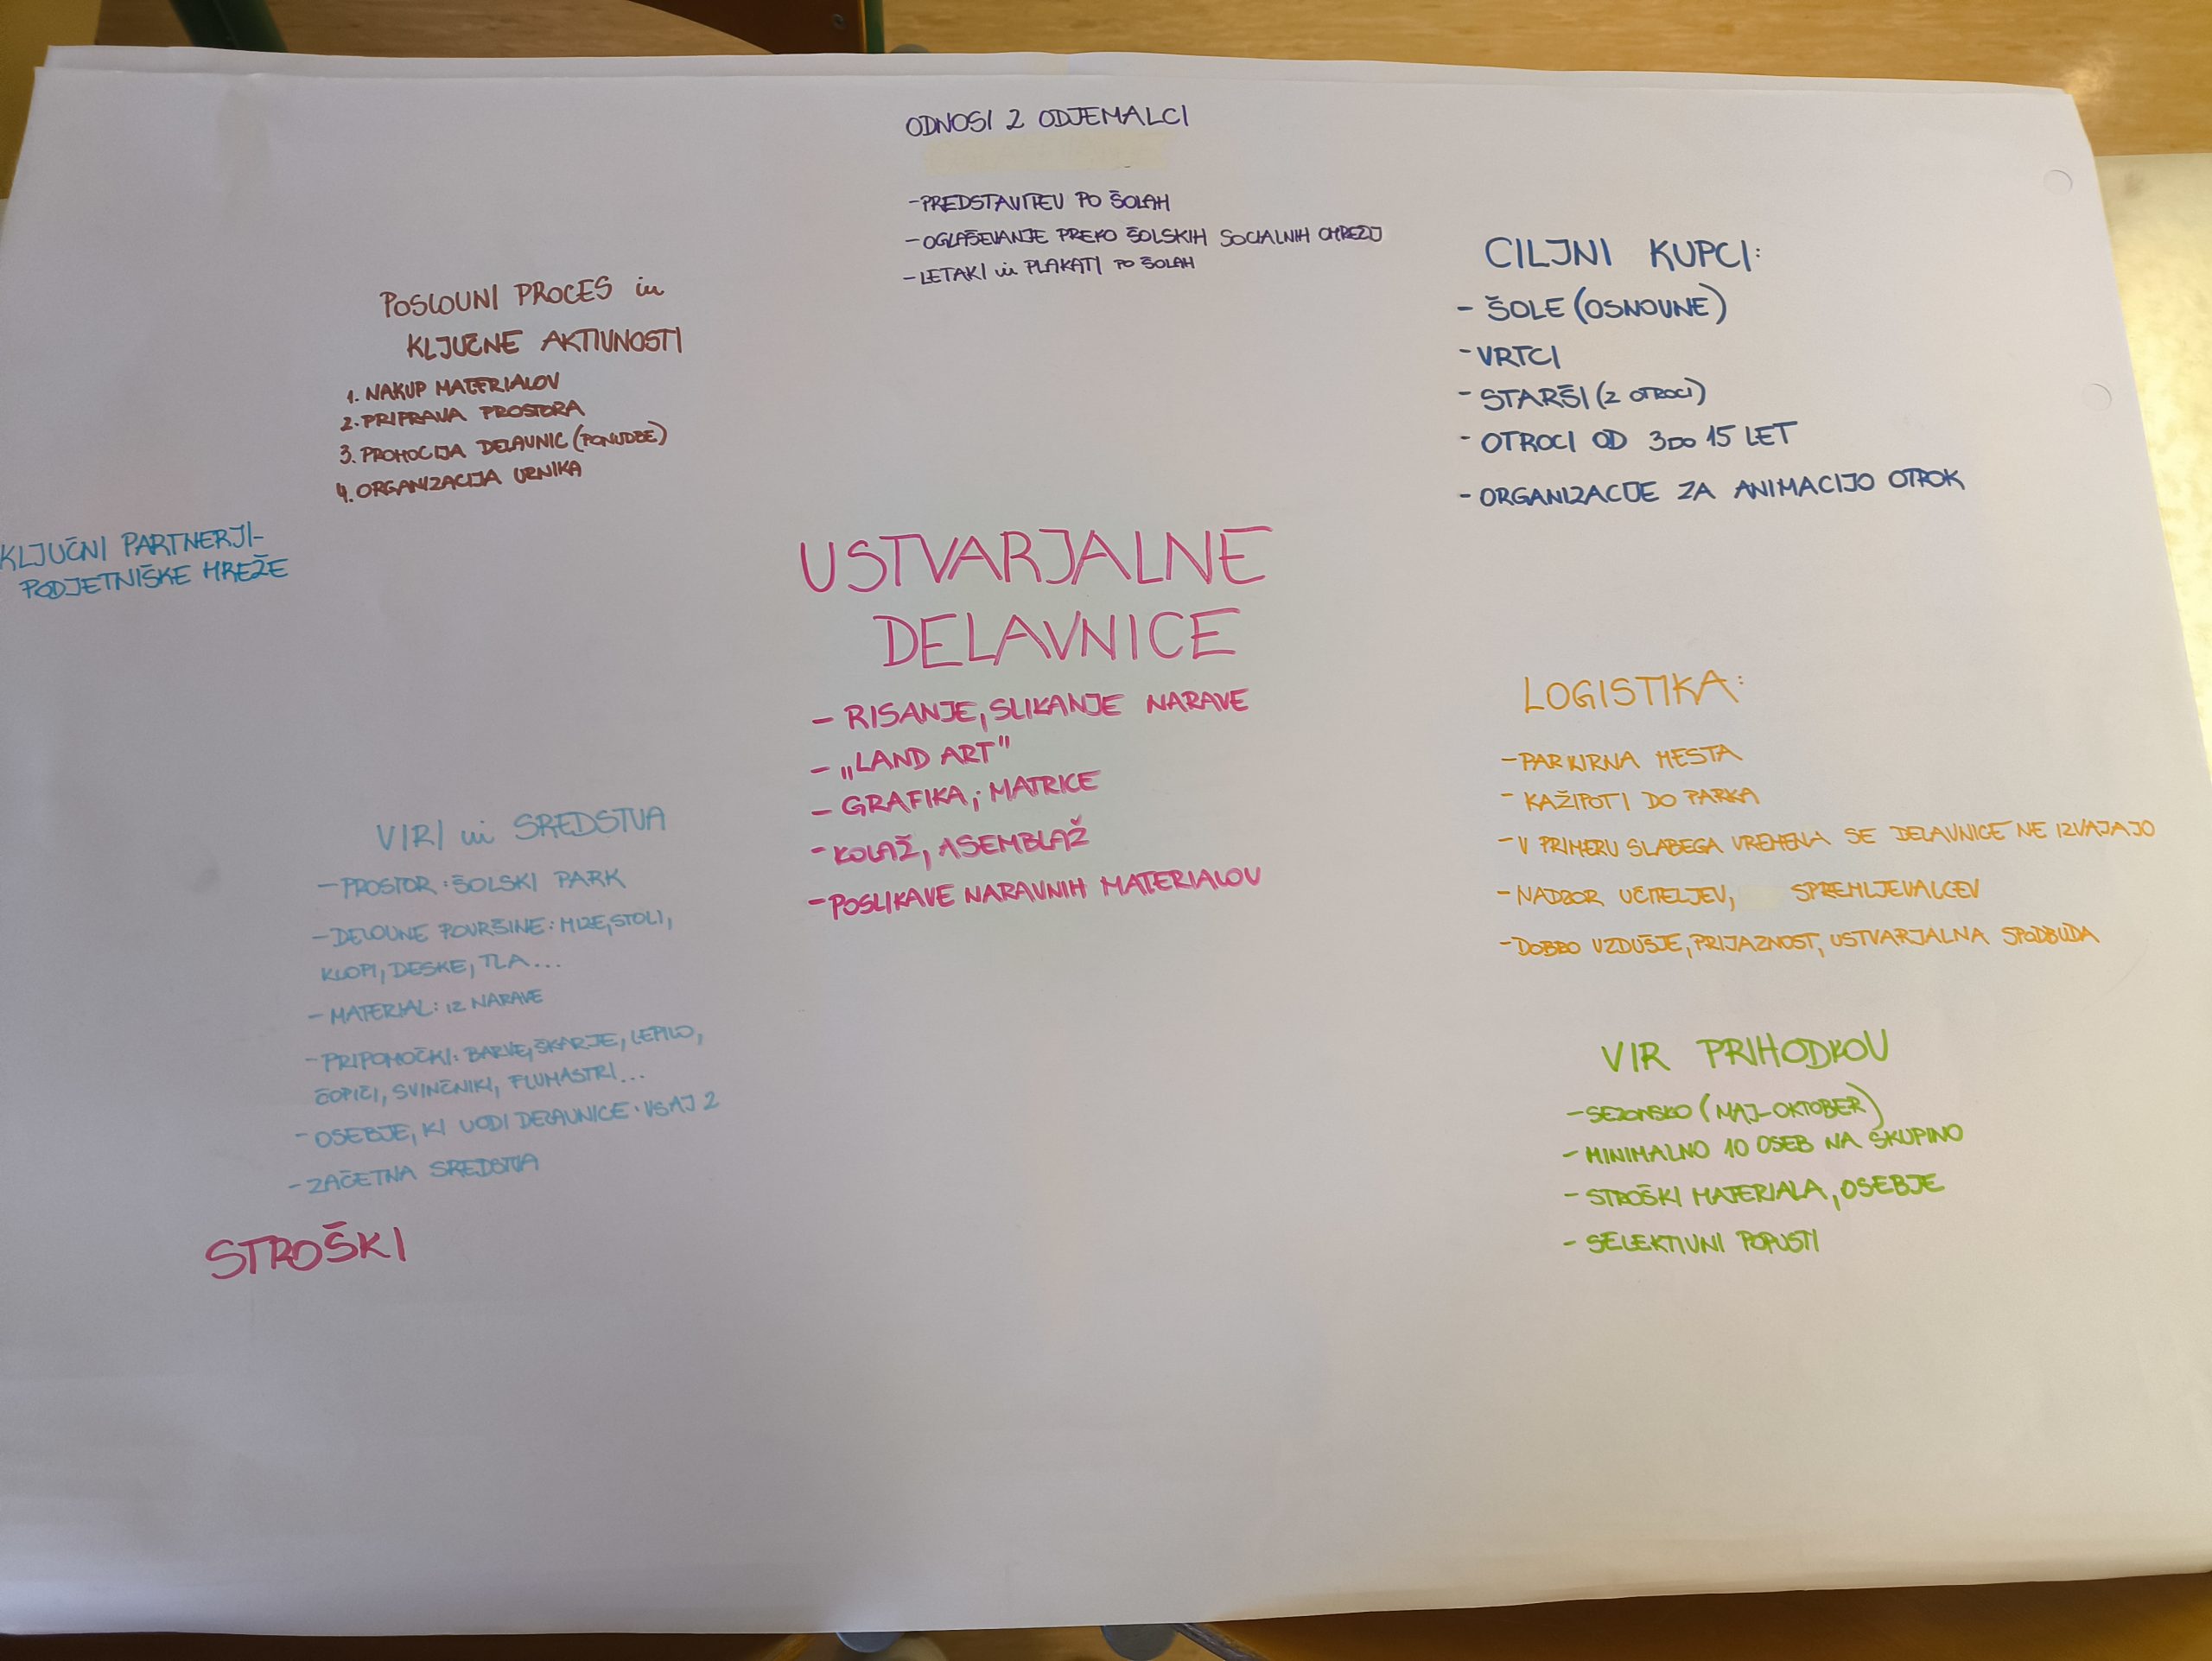 ODNOSI Z ODJEMALCI
-PREDSTAVITEV PO ŠOLAH
-OGLAŠEVANJE PREKO ŠOLSKIH SOCIALNIH OMREŽIJ
-LETAKI in PLAKATI PO ŠOLAH
POSLOVNI PROCES in
KLJUČNE AKTIVNOSTI
1. NAKUP MATERIALOV
2. PRIPRAVA PROSTORA
3. PROMOCIJA DELAVNIC (PONUDBE)
4. ORGANIZACIJA URNIKA
CILJNI KUPCI:
- ŠOLE (OSNOVNE)
- VRTCI
- STARŠI (Z OTROCI)
- OTROCI OD 3 DO 15 LET
- ORGANIZACIJE ZA ANIMACIJO OTROK
KLJUČNI PARTNERJI-
PODJETNIŠKE MREŽE
USTVARJALNE
DELAVNICE
- RISANJE, SLIKANJE NARAVE
- „LAND ART"
- GRAFIKA; MATRICE
- KOLAŽ, ASEMBLAŽ
- POSLIKAVE NARAVNIH MATERIALOV
LOGISTIKA:
- PARKIRNA MESTA
- KAŽIPOTI DO PARKA
- V PRIMERU SLABEGA VREMENA SE DELAVNICE NE IZVAJAJO
- NADZOR UČITELJEV, SPREMLJEVALCEV
- DOBRO VZDUŠJE, PRIJAZNOST, USTVARJALNA SPODBUDA
VIRI in SREDSTVA
- PROSTOR: ŠOLSKI PARK
- DELOVNE POVRŠINE: MIZE, STOLI,
KLOPI, DESKE, TLA...
- MATERIAL: IZ NARAVE
- PRIPOMOČKI: BARVE, ŠKARJE, LEPILO,
ČOPIČI, SVINČNIKI, FLUMASTRI...
- OSEBJE, KI VODI DELAVNICE: VSAJ 2
- ZAČETNA SREDSTVA
VIR PRIHODKOV
- SEZONSKO (MAJ-OKTOBER)
- MINIMALNO 10 OSEB NA SKUPINO
- STROŠKI MATERIALA, OSEBJE
- SELEKTIVNI POPUSTI
STROŠKI